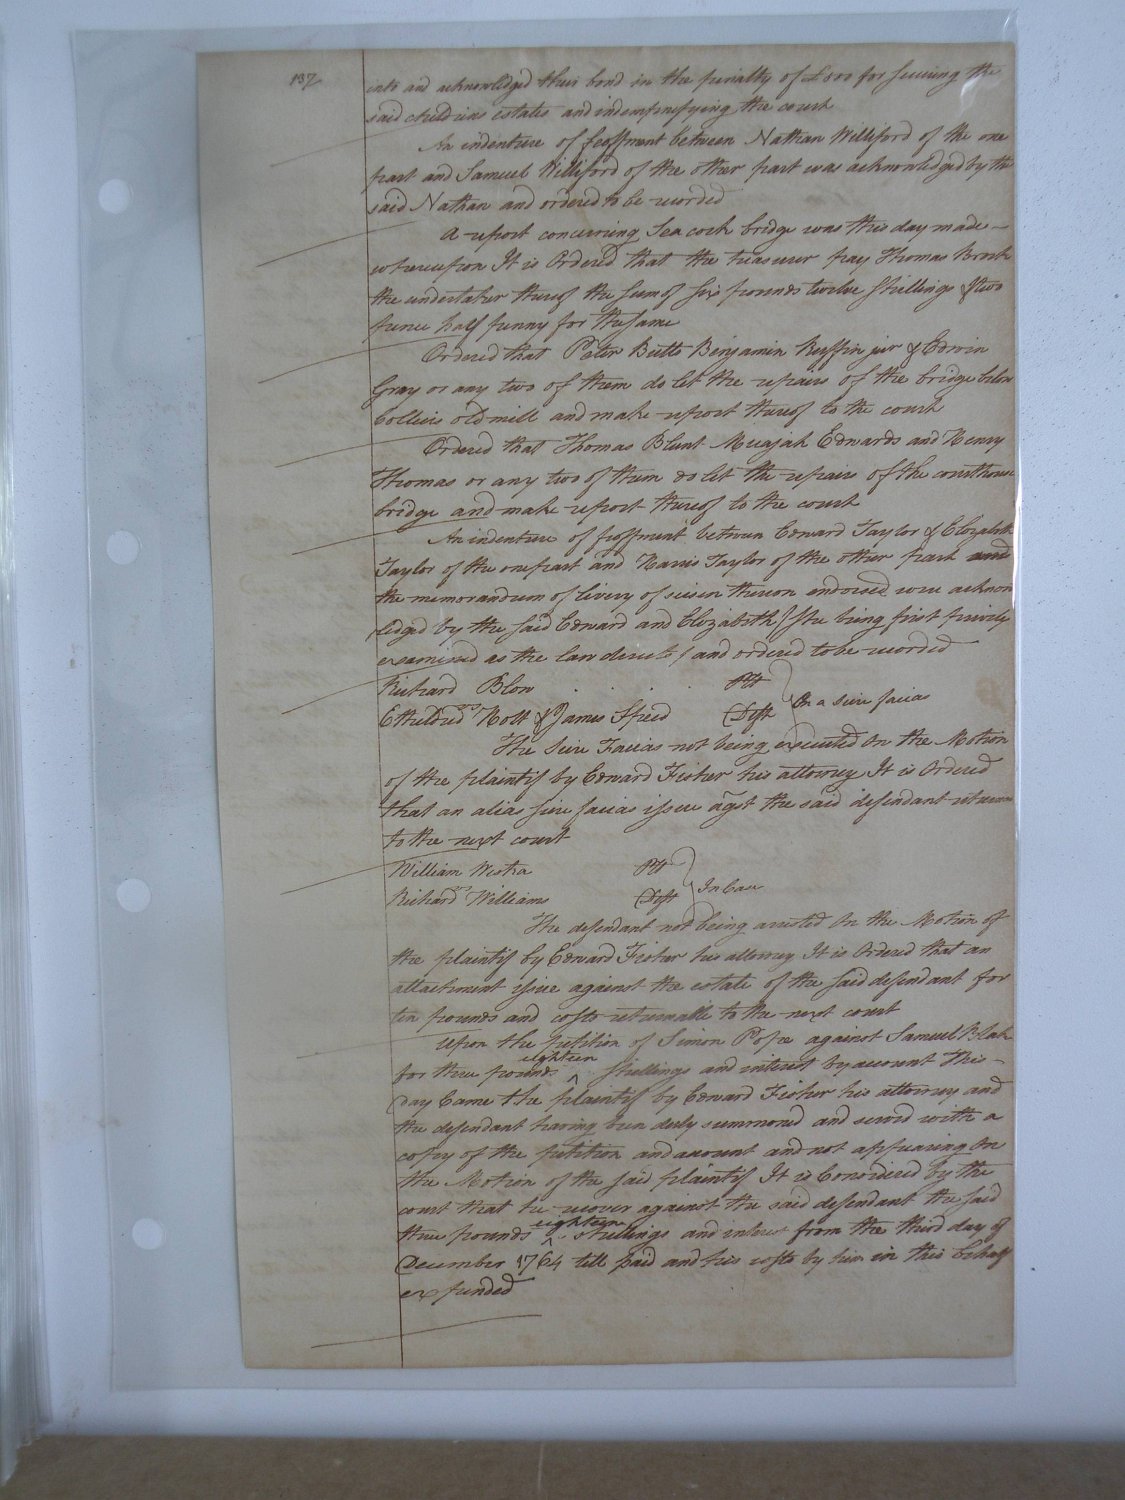 137
into and acknowledged their bond in the penalty of £500 for securing the
said childrins estates and indempnefying the court
An indenture of feoffment between Nathan Williford of the one
part and Samuel Williford of the other part was acknowledged by the
said Nathan and ordered to be recorded
A report concerning Seacock bridge was this day made –
whereupon It is Ordered that the treasurer pay Thomas Brock
the undertaker thereof the sum of six pounds twelve shillings & two
pence half penny for the same
Ordered that Peter Butts Benjamin Ruffin jur & Edwin
Gray or any two of them do let the repairs of the bridge below
Colliers old mill and make report thereof to the court
Ordered that Thomas Blunt Micajah Edwards and Henry
Thomas or any two of them do let the repairs of the courthouse
bridge and make report thereof to the court
An indenture of feoffment between Edward Taylor & Elizabeth
Taylor of the one part and Harris Taylor of the other part and
the memorandum of livery of seisin thereon endorsed were acknow
ledged by the said Edward and Elizabeth (She being first privily
examined as the law directs) and ordered to be recorded
Richard Blow Plt
Etheldred Holt & James Speed Deft On a scire facias
The Scire Facias not being executed On the Motion
of the plaintif by Edward Fisher his attorney It is Ordered
that an alias scire facias issue agst the said defendant
to the next court
William Westra Plt
Richard Williams Deft In Case
The defendant not being arrested On the Motion of
the plaintif by Edward Fisher his attorney It is Ordered that an
attachment issue against the estate of the said defendant for
ten pounds and costs returnable to the next court
Upon the petition of Simon Pope against Samuel Blake
for three pounds ^ eighteen shillings and interest by account This –
day Came the plaintif by Edward Fisher his attorney and
the defendant having been duly summoned and served with a
copy of the petition and account and not appearing On
the Motion of the said plaintif It is Considered by the
court that he recover against the said defendant the said
three pounds ^ eighteen shillings and interest from the third day of
December 1764 till paid and his costs by him in this behalf
expended